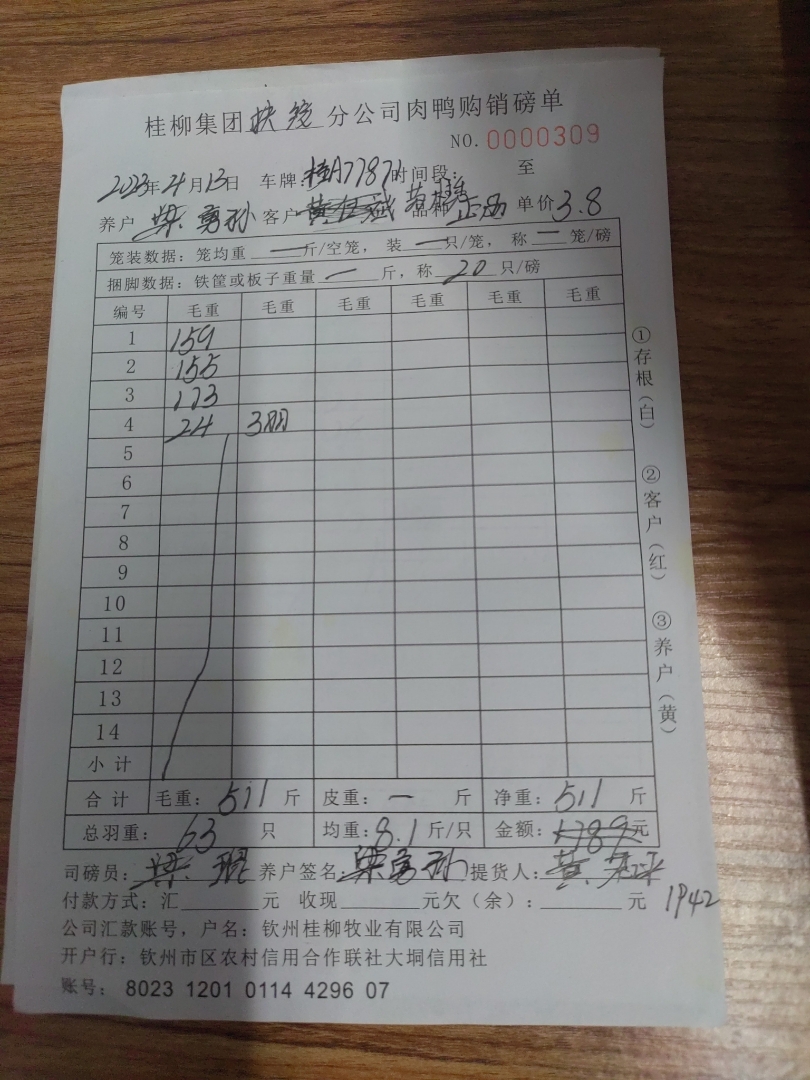 桂柳集团扶绥分公司肉鸭购销磅单
NO. 0000309
2023年4月13日 车牌:桂A7787 时间段: 至
养户 梁勇孙 客户 品种 正西 单价3.8
笼装数据: 笼均重 一 斤/空笼, 装 一 只/笼, 称 一 笼/磅
捆脚数据: 铁筐或板子重量 一 斤, 称 20 只/磅
编号 毛重 毛重 毛重 毛重 毛重 毛重
1 159
2 155
3 173
4 24 3只
5
6
7
8
9
10
11
12
13
14
小计
合计 毛重: 511 斤 皮重: 一 斤 净重: 511 斤
总羽重: 63 只 均重: 8.1 斤/只 金额: 1789元
司磅员: 梁 养户签名: 梁勇孙 提货人: 黄
付款方式: 汇 元 收现 元欠(余): 元 1942
公司汇款账号, 户名: 钦州桂柳牧业有限公司
开户行: 钦州市区农村信用合作联社大垌信用社
账号: 8023 1201 0114 4296 07
①存根(白)
②客户(红)
③养户(黄)